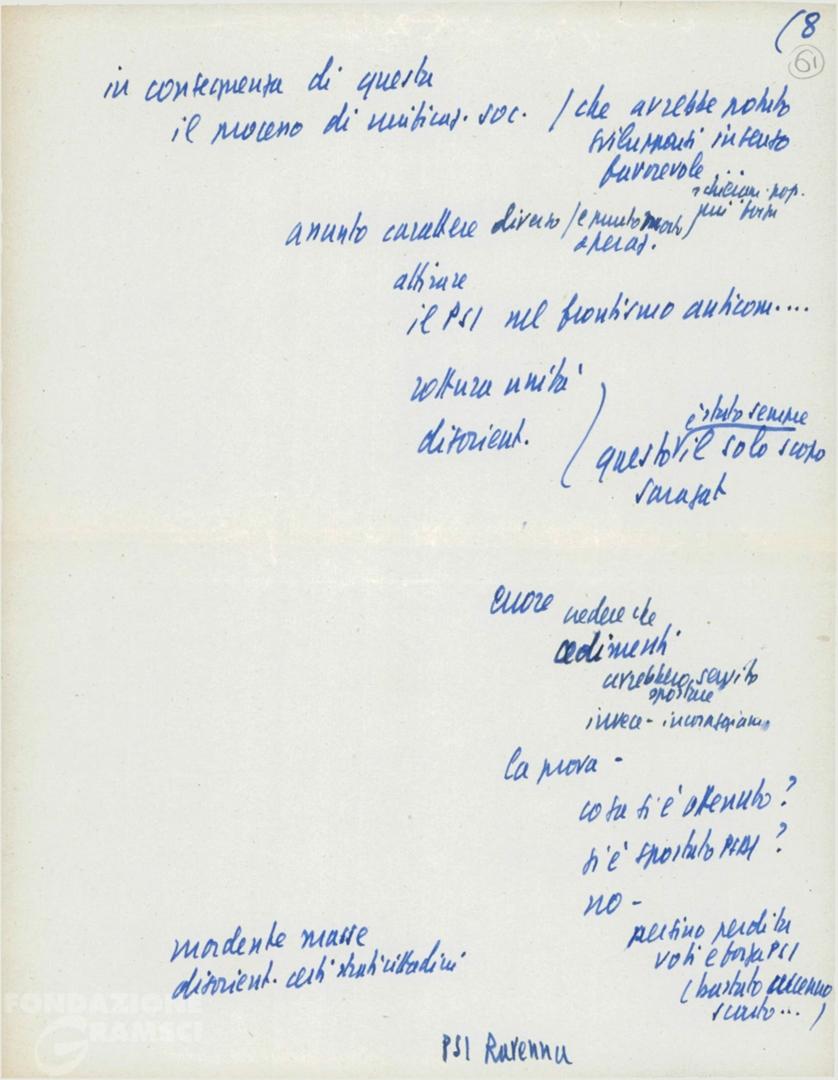 (8
61
in conseguenza di questa
il processo di unificaz. soc. / che avrebbe potuto
svilupparsi in senso
favorevole...
schieram. pop.
più forte
assunto carattere diverso / e punto morto /
operaz.
attirare
il PSI nel frontismo anticom....
rottura unità
disorient.
è stato sempre
questo il solo scopo
Saragat
errore credere che
cedimenti
avrebbero servito
spostare
invece - incoraggiam.
la prova -
cosa si è ottenuto?
si è spostato PSDI?
no -
persino perdita
voti e forza PSI
(bastato accenno
scarto...)
mordente masse
disorient. certi strati cittadini
PSI Ravenna
FONDAZIONE
GRAMSCI